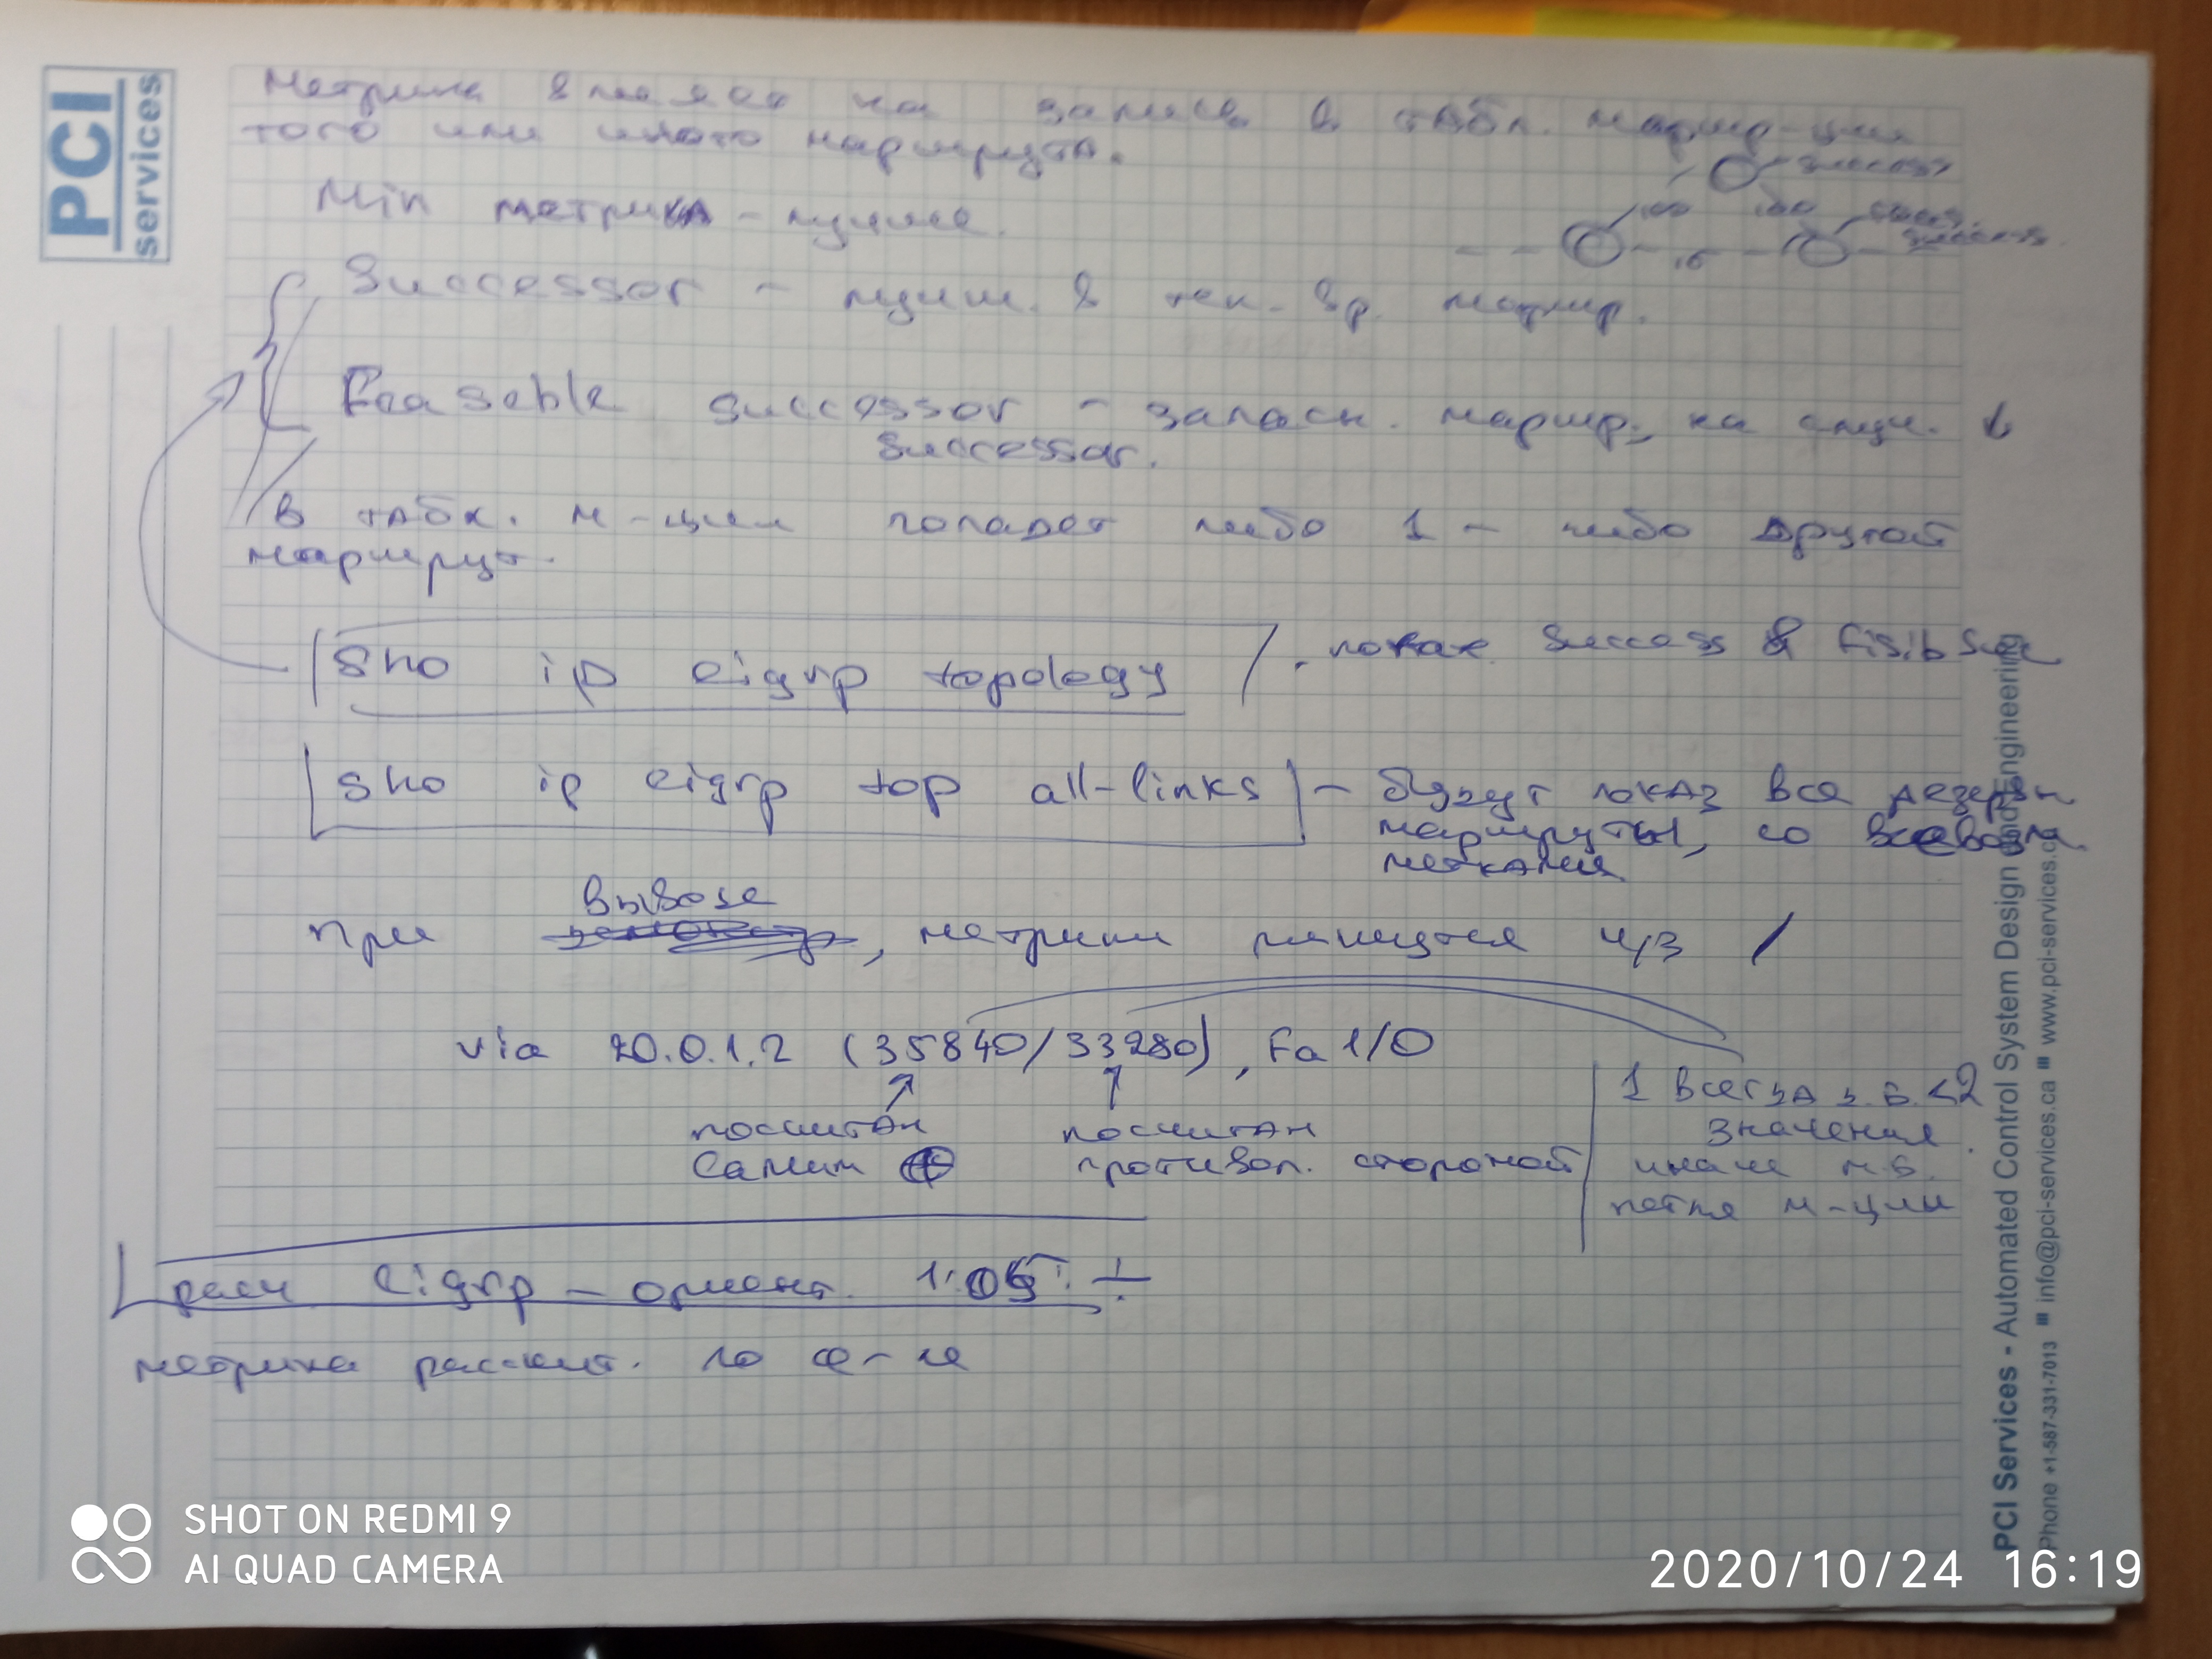 PCI
services
Метрика влияет на запись в табл. маршр-ции
того или иного маршрута.
Min метрика - лучше.
100 100
16
Successor - лучш. в тек. вр. маршр.
Feaseble successor - запасн. маршр., на случ. ↓
successor.
В табл. м-ции попадет либо 1 - либо другой
маршрут.
sho ip eigrp topology
. показ. Success & fisib Suc
sho ip eigrp top all-links - будут показ все резервн
маршруты, со всевозм
метками
вывозе
При , метрики пишутся ч/з /
via 20.0.1.2 (35840/33280), Fa 1/0
посчитан
самим
посчитан
противоп. стороной
1 всегда д.б. <2
значения
иначе м.б.
петля м-ции
расч eigrp - ориент.
метрика рассчит. по ф-ле
PCI Services - Automated Control System Design and Engineering
Phone +1-587-331-7013 ■ info@pci-services.ca ■ www.pci-services.ca
SHOT ON REDMI 9
AI QUAD CAMERA
2020/10/24 16:19